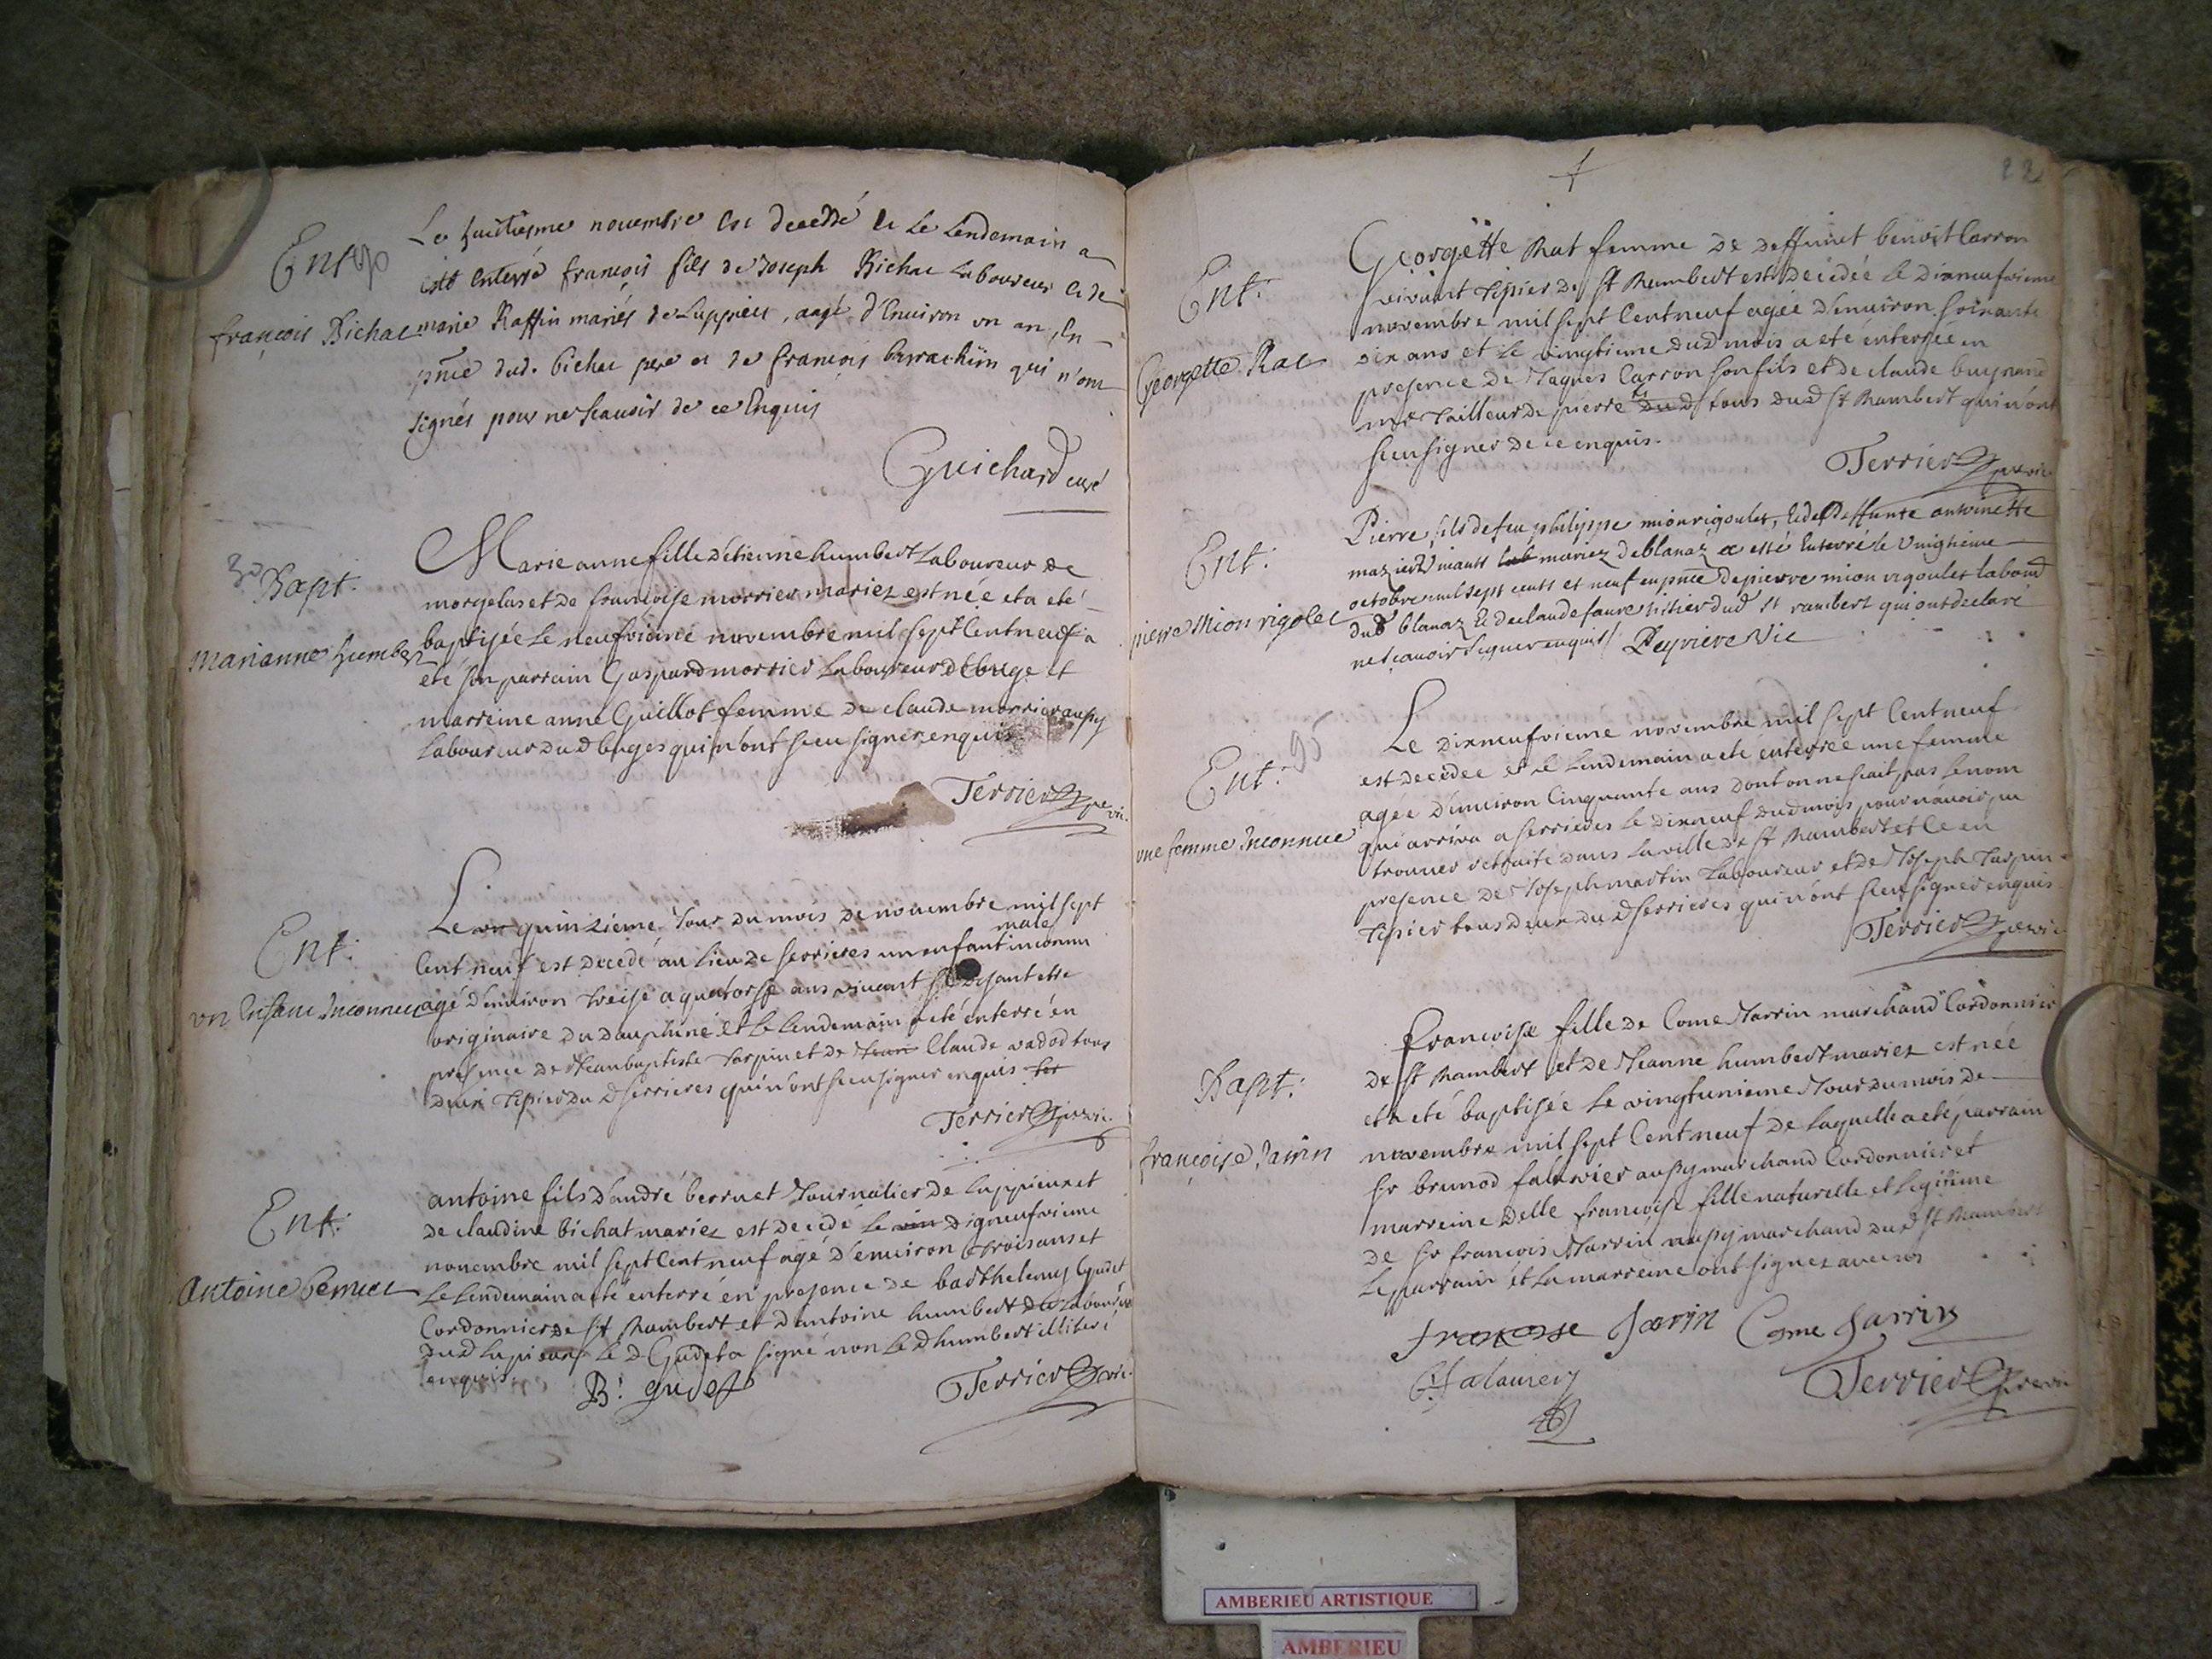 Ent 90
françois Bichat
Le huitiesme novembre est decedé et le lendemain a
esté enterré françois fils de Joseph Bichat laboureur et de
marie Raffin mariés de Luppieu, aagé d'environ un an, en
pnce dud. bichat pere et de françois barrachin qui n'ont
signés pour ne scauoir de ce Enquis
Guichard curé
Bapt.
Marianne humbert
Marie anne fille d'etienne humbert laboureur de
morgelas et de francoise morrier mariez est née et a eté
baptisée le neufvieme novembre mil sept cent neuf a
eté son parrain Gaspard morrier laboureur de buge et
marreine anne Guillot femme de claude morrier aussy
laboureur dud buges qui n'ont sceu signer enquis
Terrier pre vic.
Ent.
un Enfant Inconnu
Le quinzieme Jour du mois de novembre mil sept
male
Cent neuf est decedé au lieu de serrieres un enfant inconnu
agé d'environ treise a quatorse ans vivant se disant etre
originaire du dauphiné et le lendemain a eté enterré en
presence de Jean baptiste tarpin et de Jean Claude vadod tous
deux tipier dud serrieres qui n'ont sceu signer enquis
Terrier pre vic.
Ent.
Antoine berruet
antoine fils d'andré berruet Journalier de luppieu et
de claudine bichat mariez est decedé le vin digneufvieme
novembre mil sept Cent neuf agé d'environ trois ans et
le lendemain a eté enterré en presence de barthelemy Gudet
Cordonnier de st Rambert et d'antoine humbert laboureur
dud lupieu le d Gudet a signé non le d humbert illiteré
enquis.
B. gudet
Terrier vic.
22
Ent.
Georgette Rat
Georgette Rat femme de deffunt benoit Carron
vivant tipier de st Rambert est decedée le dixneufvieme
novembre mil sept Cent neuf agée d'environ soixante
dix ans et le vingtieme dud mois a eté enterrée en
presence de Jaques Carron son fils et de claude
tailleur de pierre dud tous dud st Rambert qui n'ont
sceu signer de ce enquis.
Terrier pre vic.
Ent.
pierre Mion rigolet
Pierre fils de feu philippe mion rigoulet, & de deffunte antoinette
mazier vivants lab mariez de blanaz a esté enterré le vingtieme
octobre mil sept cents et neuf en pnce de pierre mion rigoulet labour
dud blanaz & de claude faure tisier dud st rambert qui ont declaré
ne scavoir signer enquis / Peyriere Vic
Ent. 95
une femme Inconnue
Le dixneufvieme novembre mil sept Cent neuf
est decedée et le lendemain a eté enterrée une femme
agée d'environ Cinquante ans dont on ne sçait pas le nom
qui arriva a serrieres le dixneuf dud mois pour n'avoir pu
trouver retraite dans la ville de st Rambert et ce en
presence de Joseph martin laboureur et de Joseph tarpin
tipier tous deux dud serrieres qui n'ont sceu signer enquis
Terrier pre vic.
Bapt.
françoise Jarrin
Francoise fille de Come Jarrin marchand Cordonnier
de st Rambert et de Jeanne humbert mariez est née
et a eté baptisée le vingtunieme Jour du mois de
novembre mil sept Cent neuf de laquelle a eté parrain
sr brunod falavier aussy marchand Cordonnier et
marreine delle francoise fille naturelle et legitime
de sr francois Jarrin aussy marchand dud st Rambert
le parrain et la marreine ont signez avec nos
francoise Jarrin Come Jarrin
Terrier pre vic
AMBERIEU ARTISTIQUE
AMBERIEU